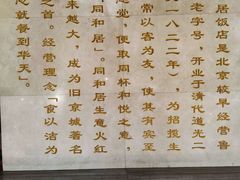 居饭店是北京较早经营鲁
老字号，开业于清代道光二
八二二年），为招揽生
常以客为友，使其有宾至
觉，便取同怀和悦之意，
同和居”。同和居生意火红
来越大，成为旧京城著名
之首。经营理念“食以洁为
心就餐到华天”。